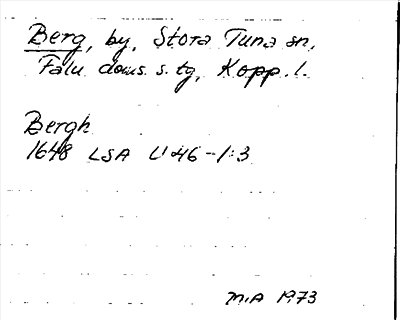 Berg, by, Stora Tuna sn,
Falu doms. s. tg, Kopp. l.
Bergh
1648 LSA U 46-1:3
M.A 1973